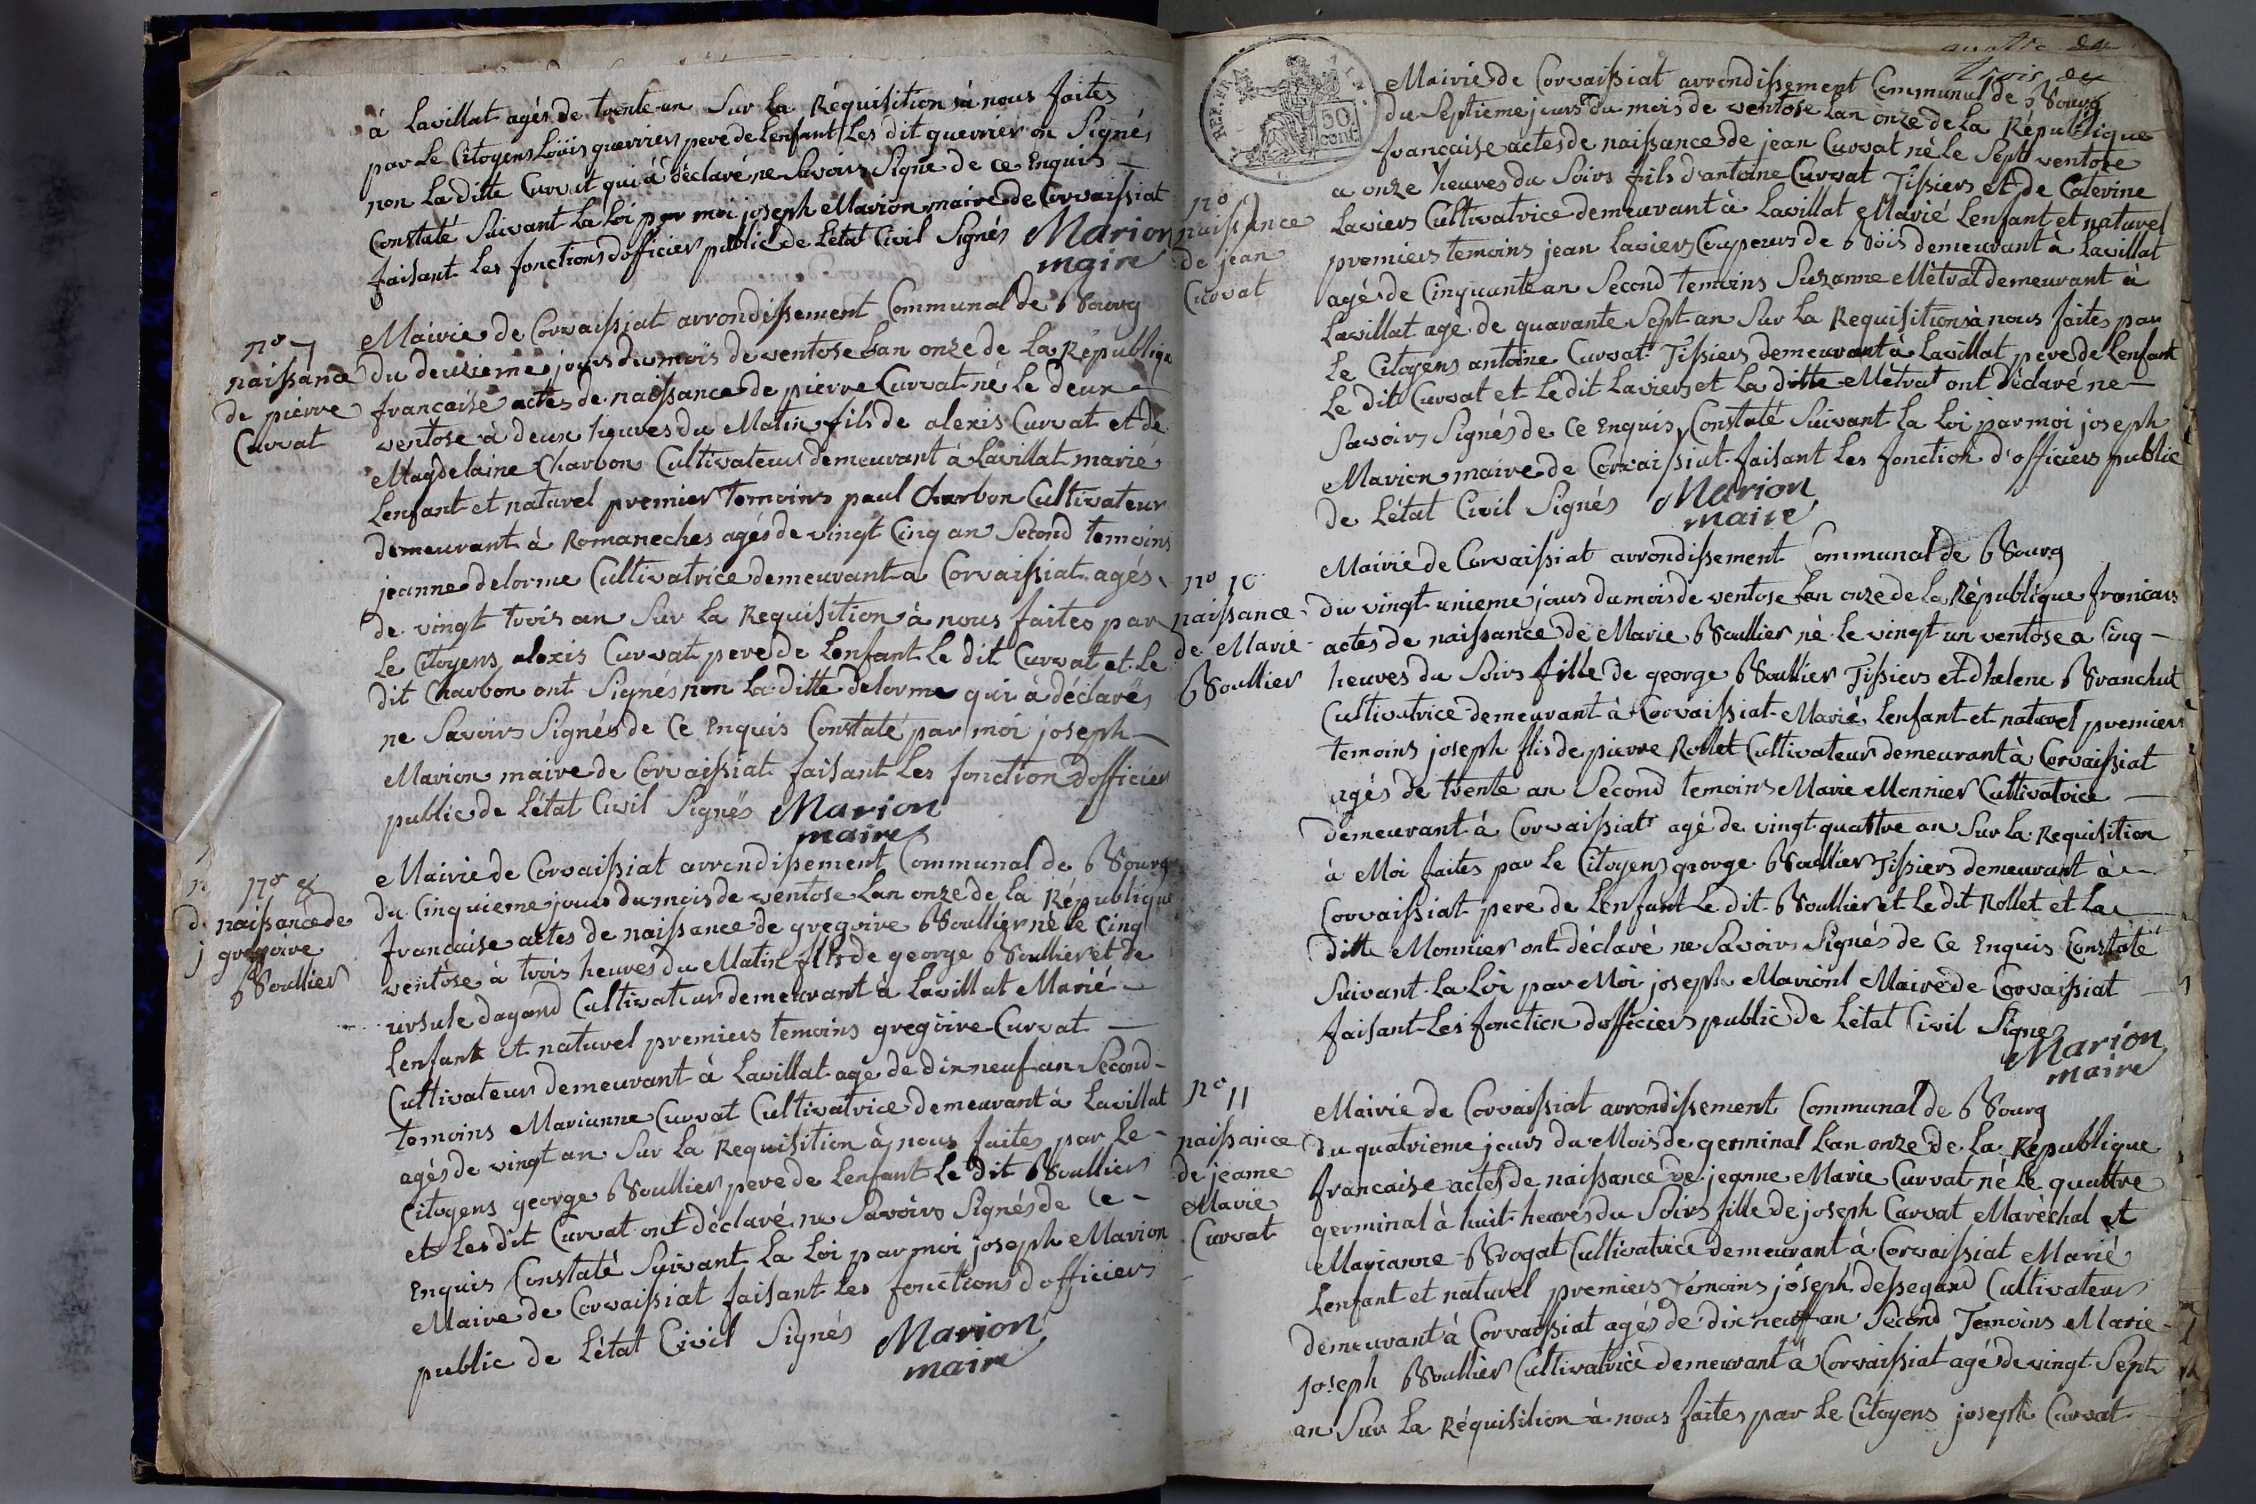 à Lavillat agés de trente un Sur La Réquisition à nous faites
par Le Citoyens Loüis guerriers pere de Lenfant Les dit guerrier on Signés
non La ditte Curvat qui à déclaré ne Savoirs Signé de ce Enquis
Constaté Suivant La Loi par moi joseph Marion maire de Corvaissiat
faisant Les fonctions dofficier public de Létat Civil Signés Marion
maire
n° 7
naissance
de pierre
Curvat
Mairie de Corvaissiat arrondissement Communal de Bourg
du deusieme jours du mois de ventose Lan onze de La Républiqu
francaise actes de naissance de pierre Curvat né Le deux
ventose à deux heures du Matin fils de alexis Curvat et de
Magdelaine Charbon Cultivateurs demeurant à Lavillat marié
Lenfant et naturel premier temoins paul Charbon Cultivateur
demeurant à Romaneches agés de vingt Cinq an Second temoins
jeanne delorme Cultivatrice demeurant a Corvaissiat agés
de vingt trois an Sur La Requisition à nous faites par
Le Citoyens alexis Curvat pere de Lenfant Le dit Curvat et Le
dit Charbon ont Signés non La ditte delorme qui à déclarés
ne Savoirs Signés de Ce Enquis Constaté par moi joseph
Marion maire de Corvaissiat faisant Les fonction dofficier
public de Létat Civil Signés Marion
maire
n° 8
naissance de
gregoire
Boullier
Mairie de Corvaissiat arrondissement Communal de Bourg
du Cinquieme jours du mois de ventose Lan onze de La République
francaise actes de naissance de gregoire Boullier né le Cinq
ventose à trois heures du Matin fils de george Boullier et de
ursule dagand Cultivateurs demeurant à Lavillat Marié
Lenfant et naturel premiers temoins gregöire Curvat
Cultivateur demeurant à Lavillat agé de dix neuf an Second
temoins Marianne Curvat Cultivatrice demeurant à Lavillat
agés de vingt an Sur La Requisition à nous faites par Le
Citoyens george Boullier pere de Lenfant Le dit Boulliers
et Les dit Curvat ont déclaré ne Savoirs Signés de Ce
Enquis Constaté Suivant La Loi par moi joseph Marion
Maire de Corvaissiat faisant Les fonctions dofficiers
public de Létat Civil Signés Marion
maire
trois
REP. FRA.
50
cent.
n°
naissance
de jean
Curvat
Mairie de Corvaissiat arrondissement Communal de Bourg
du Septieme jours du mois de ventose Lan onze de La République
francaise actes de naissance de jean Curvat né Le Sept ventose
a onze heures du Soirs fils d'antoine Curvat Tissiers et de Caterine
Laviers Cultivatrice demeurant à Lavillat Marié Lenfant et naturel
premiers temoins jean Laviers Coupeurs de Böis demeurant à Lavillat
agés de Cinquante an Second temoins Suzanne Métral demeurant à
Lavillat age de quarante Sept an Sur La Requisitions à nous faites par
Le Citoyens antoine Curvat Tissiers demeurant à Lavillat pere de Lenfant
Le dit Curvat et Le dit Laviers et La ditte Métrat ont déclaré ne
Savoirs Signés de Ce Enquis Constaté Suivant La Loi par moi joseph
Marion maire de Corvaissiat faisant Les fonction d'officiers public
de Létat Civil Signés Marion
maire
n° 10
naissance
de Marie
Boullier
Mairie de Corvaissiat arrondissement Communal de Bourg
du vingt unieme jours du mois de ventose Lan onze de La République francais
actes de naissance de Marie Boullier né Le vingt un ventose a Cinq
heures du Soirs fille de george Boullier Tissiers et dhelene Branchut
Cultivatrice demeurant à Corvaissiat Marié Lenfant et naturel premiers
temoins joseph flis de pierre Rollet Cultivateur demeurant à Corvaissiat
agés de trente an Second temoins Marie Monnier Cultivatrice
demeurant à Corvaissiat agé de vingt quattre an Sur La Requisition
à Moi faites par Le Citoyens george Boullier Tissiers demeurant à
Corvaissiat pere de Lenfant Le dit Boullier et Le dit Rollet et La
ditte Monnier ont déclaré ne Savoirs Signés de Ce Enquis Constaté
Suivant La Loi par Moi joseph Marionl Maire de Corvaissiat
faisant Les fonction dofficiers public de Létat Civil Signés
Marion
maire
n° 11
naissance
de jeanne
Marie
Curvat
Mairie de Corvaissiat arrondissement Communal de Bourg
du quatrieme jours du Mois de germinal Lan onze de La République
francaise actes de naissance de jeanne Marie Curvat né Le quattre
germinal à huit heures du Soirs fille de joseph Curvat Maréchal et
Marianne Brogat Cultivatrice demeurant à Corvaissiat Marié
Lenfant et naturel premiers témoins joseph dessegand Cultivateurs
demeurant à Corvaissiat agés de dix neuf an Second Temoins Marie
joseph Boullier Cultivatrice demeurant à Corvaissiat agé de vingt Sept
an Sur La Réquisition à nous faites par Le Citoyens joseph Curvat